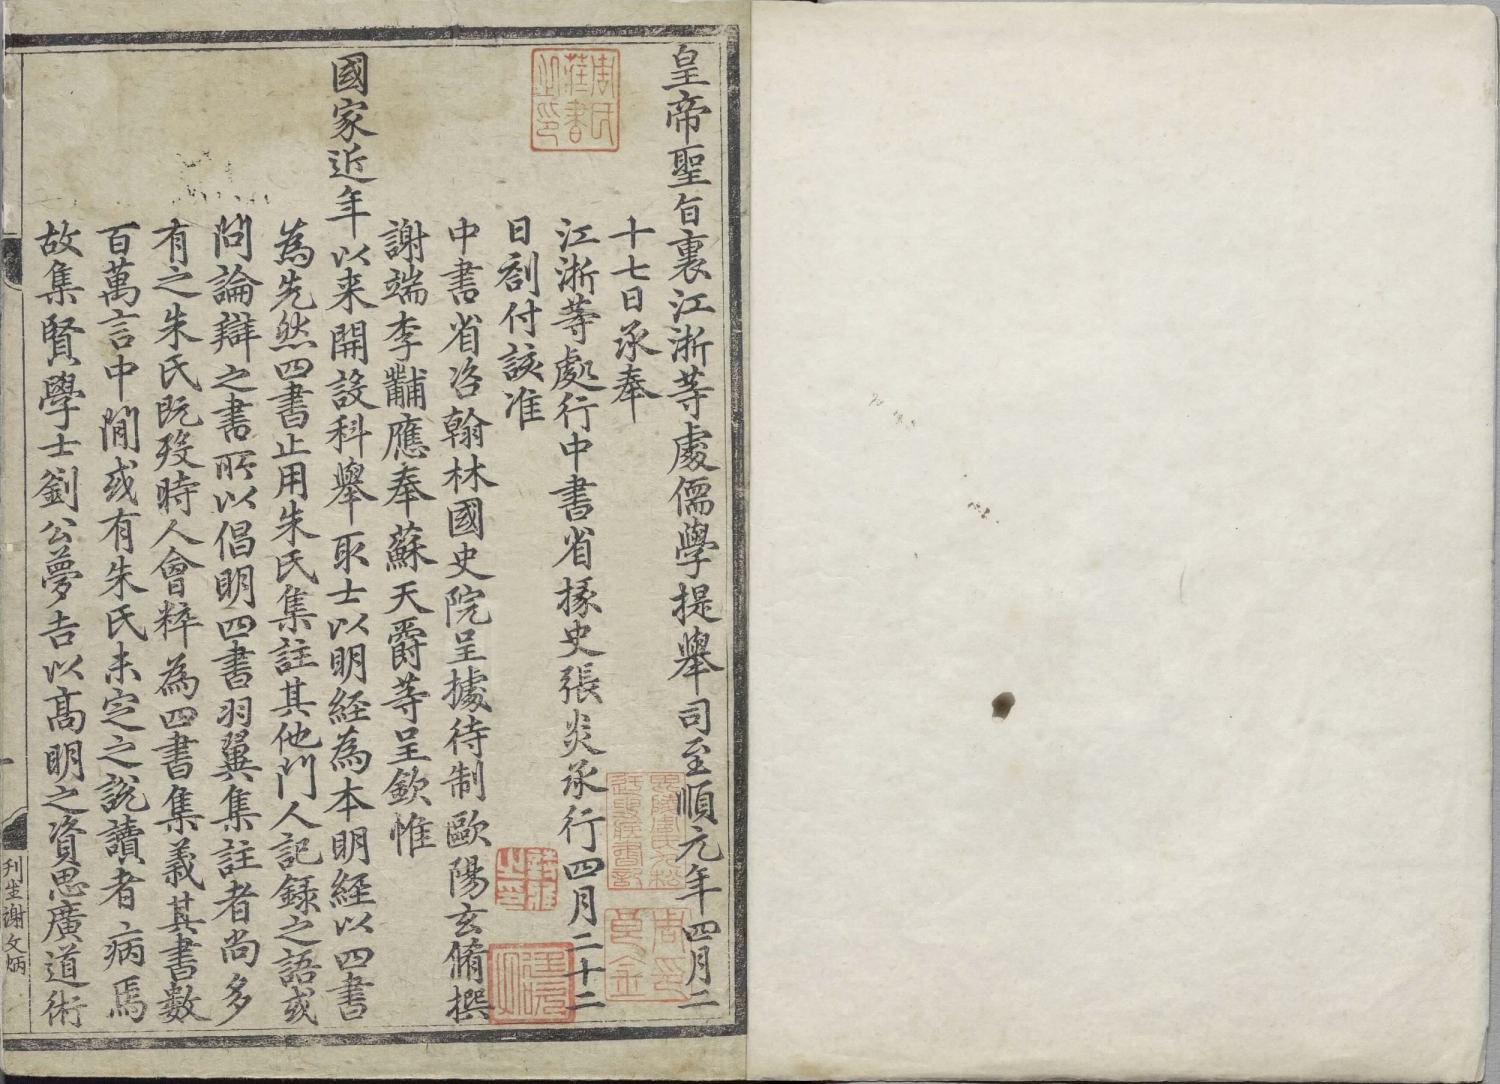 皇帝聖旨裏江浙等處儒學提舉司至順元年四月二
十七日承奉
江浙等處行中書省掾史張炎承行四月二十二
日劄付該准
中書省咨翰林國史院呈據待制歐陽玄脩撰
謝端李黼應奉蘇天爵等呈欽惟
國家近年以来開設科舉取士以明經為本明經以四書
為先然四書止用朱氏集註其他門人記録之語或
問論辯之書所以倡明四書羽翼集註者尚多
有之朱氏既歿時人會粹為四書集義其書數
百萬言中間或有朱氏未定之說讀者病焉
故集賢學士劉公夢吉以髙明之資思廣道術
刋生謝文炳
周氏藏書之印
周良金印
汪文琛印